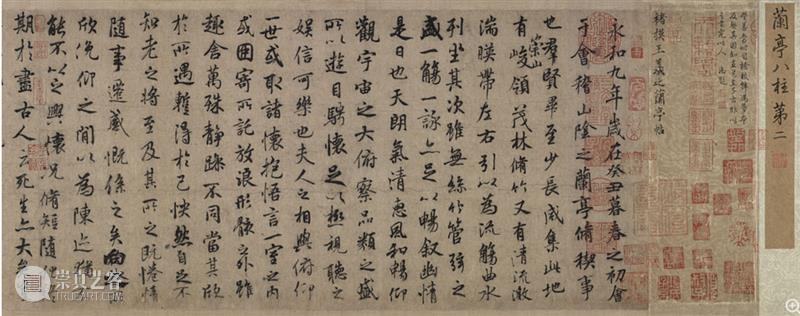 蘭亭八柱第二
褚模王羲之蘭亭帖
永和九年歲在癸丑暮春之初會
于會稽山陰之蘭亭脩稧事
也羣賢畢至少長咸集此地
崇山
有峻領茂林脩竹又有清流激
湍暎帶左右引以為流觴曲水
列坐其次雖無絲竹管弦之
盛一觴一詠亦足以暢叙幽情
是日也天朗氣清惠風和暢仰
觀宇宙之大俯察品類之盛
所以遊目騁懷足以極視聽之
娛信可樂也夫人之相與俯仰
一世或取諸懷抱悟言一室之內
或因寄所託放浪形骸之外雖
趣舍萬殊靜躁不同當其欣
於所遇暫得於己怏然自足不
知老之將至及其所之既惓情
隨事遷感慨係之矣向之
欣俛仰之間以為陳迹猶
能不以之興懷況脩短隨
期於盡古人云死生亦大矣
崇真艺客